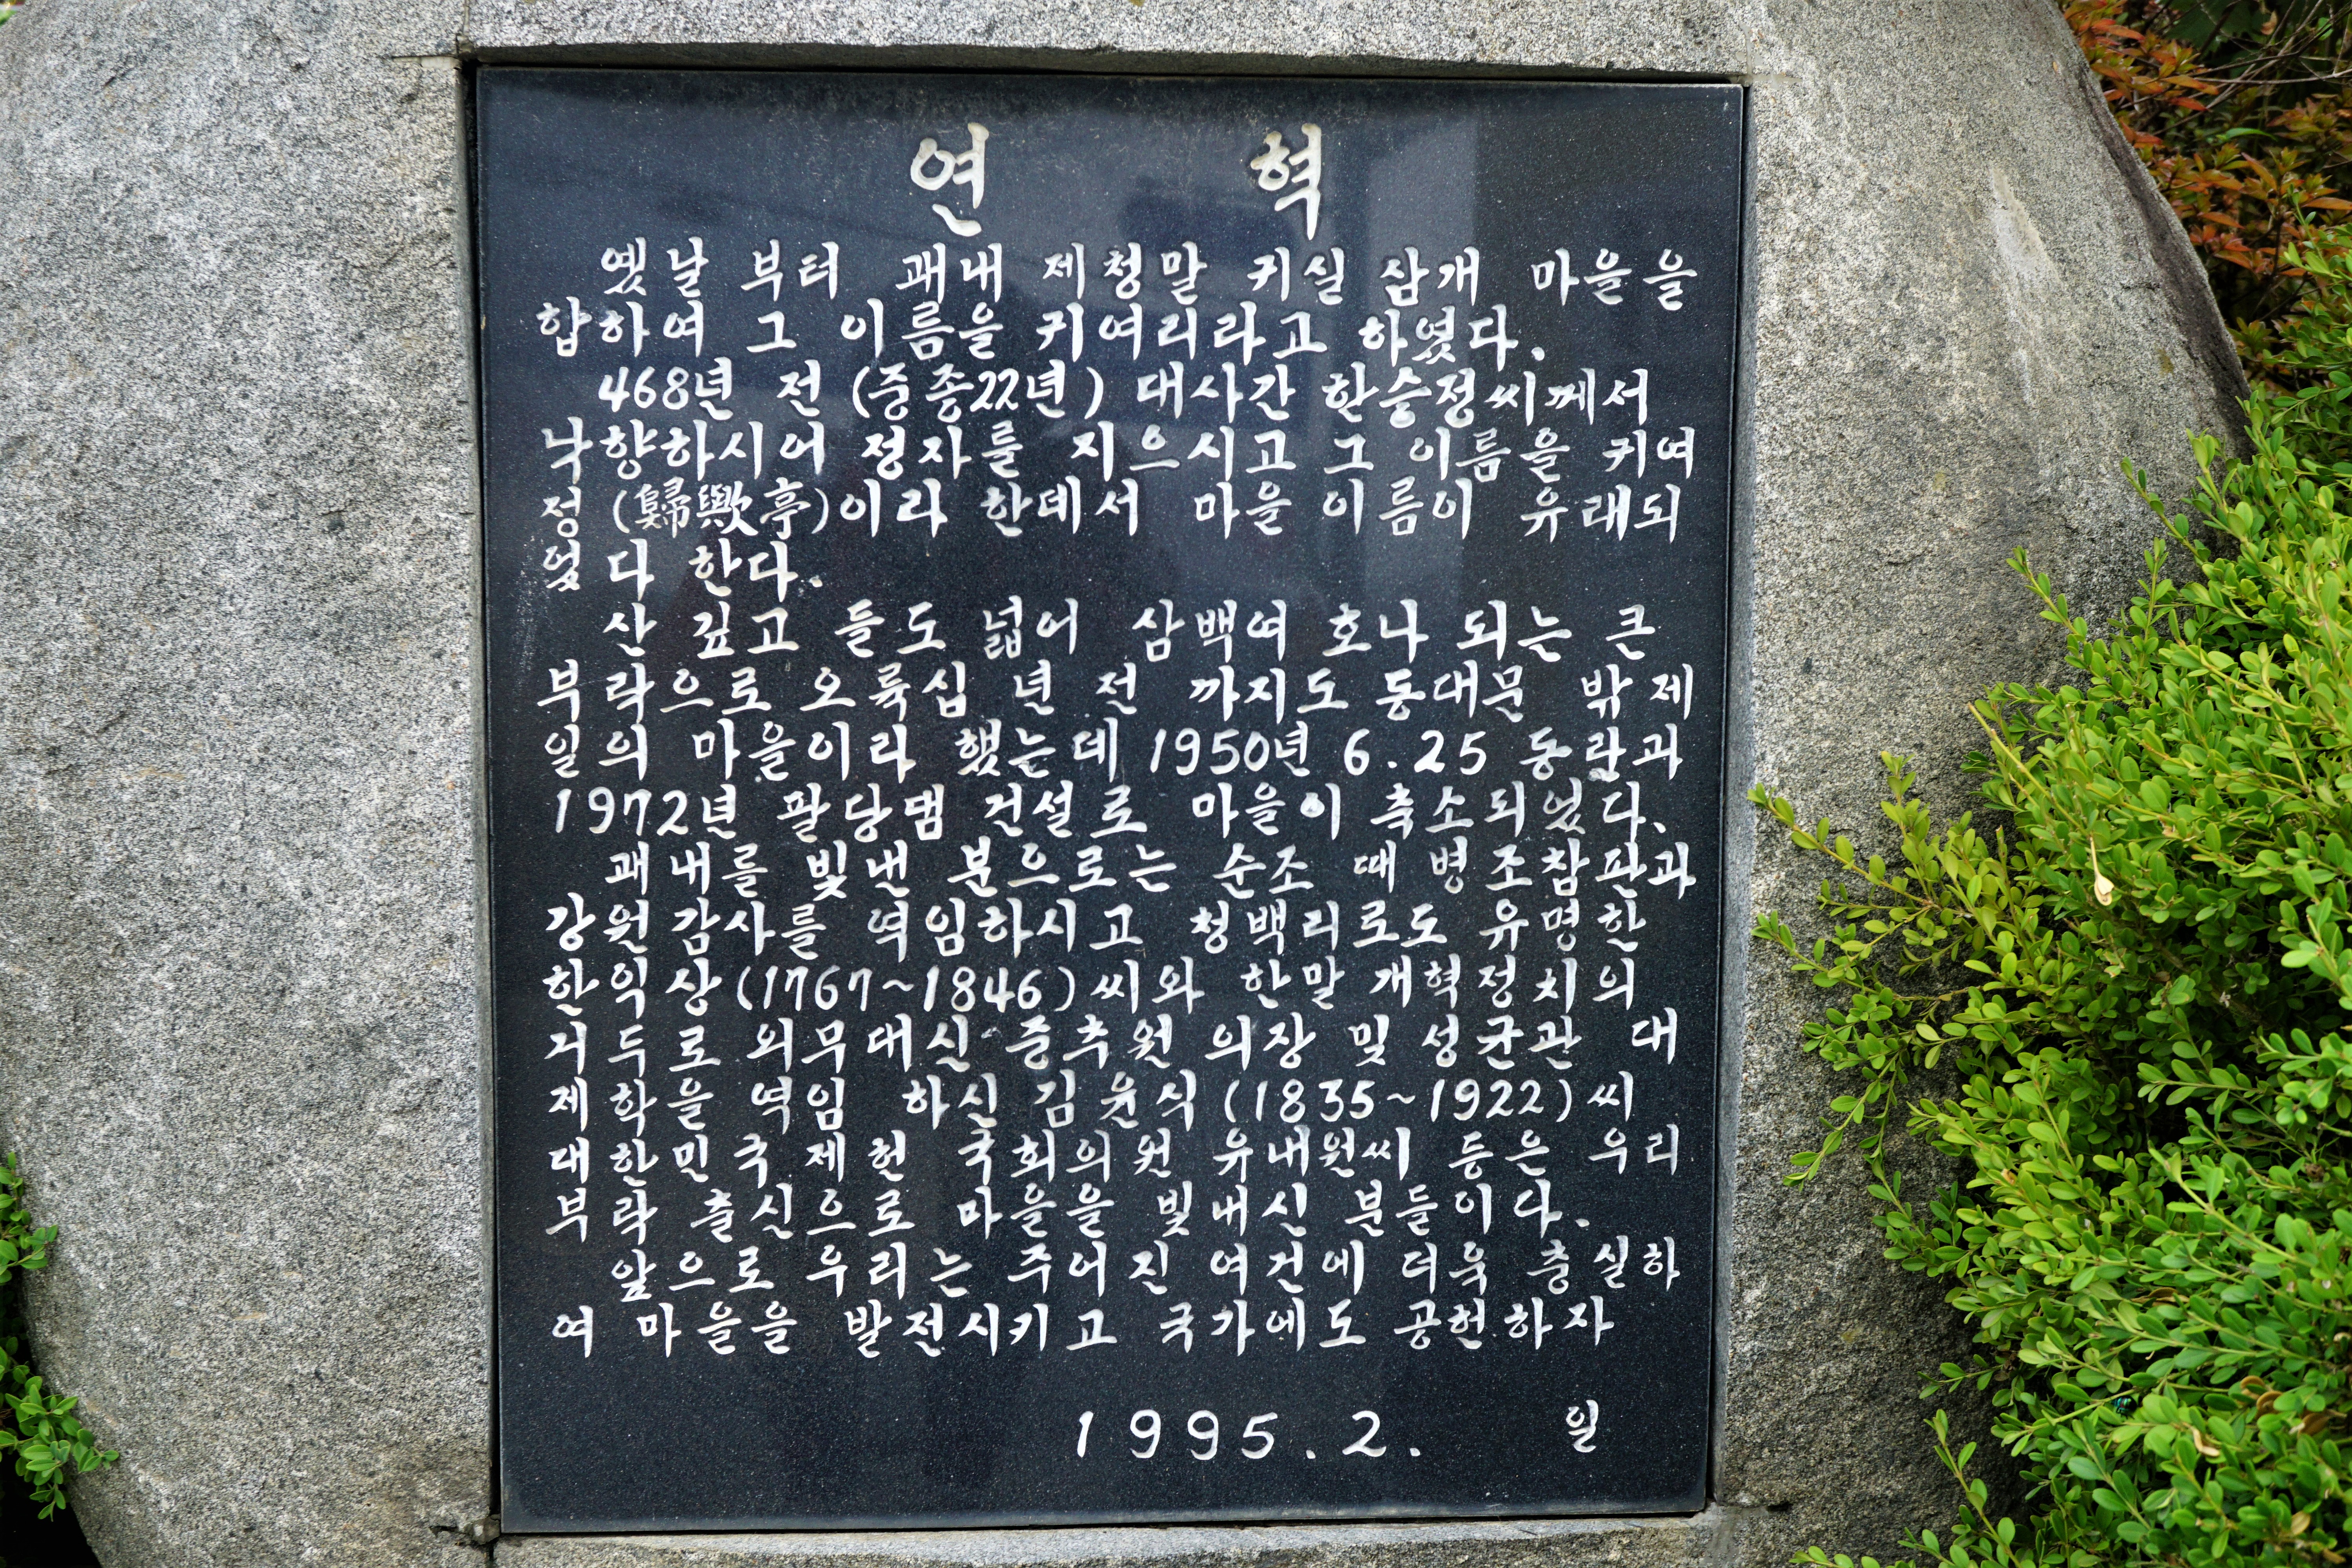 연 혁
옛날 부터 괘내 제청말 귀실 삼개 마을을
합하여 그 이름을 귀여리라고 하였다.
468년 전 (중종22년) 대사간 한승정씨께서
낙향하시어 정자를 지으시고 그 이름을 귀여
정 (歸歟亭)이라 한데서 마을 이름이 유래되
었다 한다.
산 깊고 들도 넓어 삼백여 호나 되는 큰
부락으로 오륙십 년 전 까지도 동대문 밖 제
일의 마을이라 했는데 1950년 6.25 동란과
1972년 팔당댐 건설로 마을이 축소되었다.
괘내를 빛낸 분으로는 순조 때 병조참판과
강원감사를 역임하시고 청백리로도 유명한
한익상(1767~1846)씨와 한말 개혁정치의
거두로 외무대신 중추원 의장 및 성균관 대
제학을 역임 하신 김윤식 (1835~1922)씨
대한민국제헌 국회의원 유내원씨 등은 우리
부락 출신으로 마을을 빛내신 분들이다.
앞으로 우리는 주어진 여건에 더욱 충실하
여 마을을 발전시키고 국가에도 공헌하자
1995. 2. 일